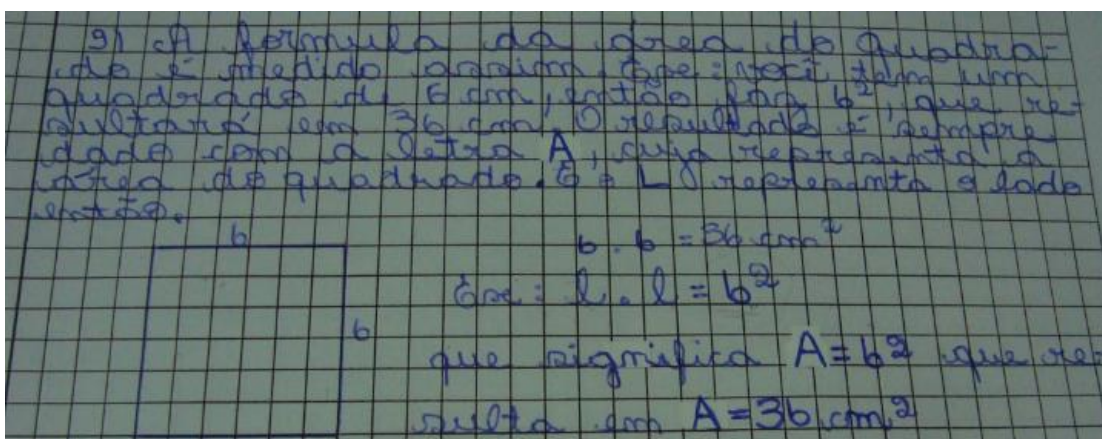 9) A formula da área do quadra-
do é medido assim. Exe: você tem um
quadrado de 6 cm, então faz 6², que re-
sultará em 36 cm² O resultado é sempre
dado com a letra A, cuja representa a
área do quadrado. E o L representa o lado
então.
6
6 . 6 = 36 cm²
Exe: l . l = 6²
6
que significa A = 6² que re-
sulta em A = 36 cm²